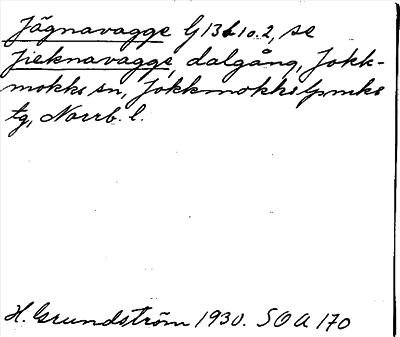 Jägnavagge G 13b 10.2, se
Jieknavagge, dalgång, Jokk-
mokks sn, Jokkmokks lpmks
tg, Norrb. l.
H. Grundström 1930. SOA 170